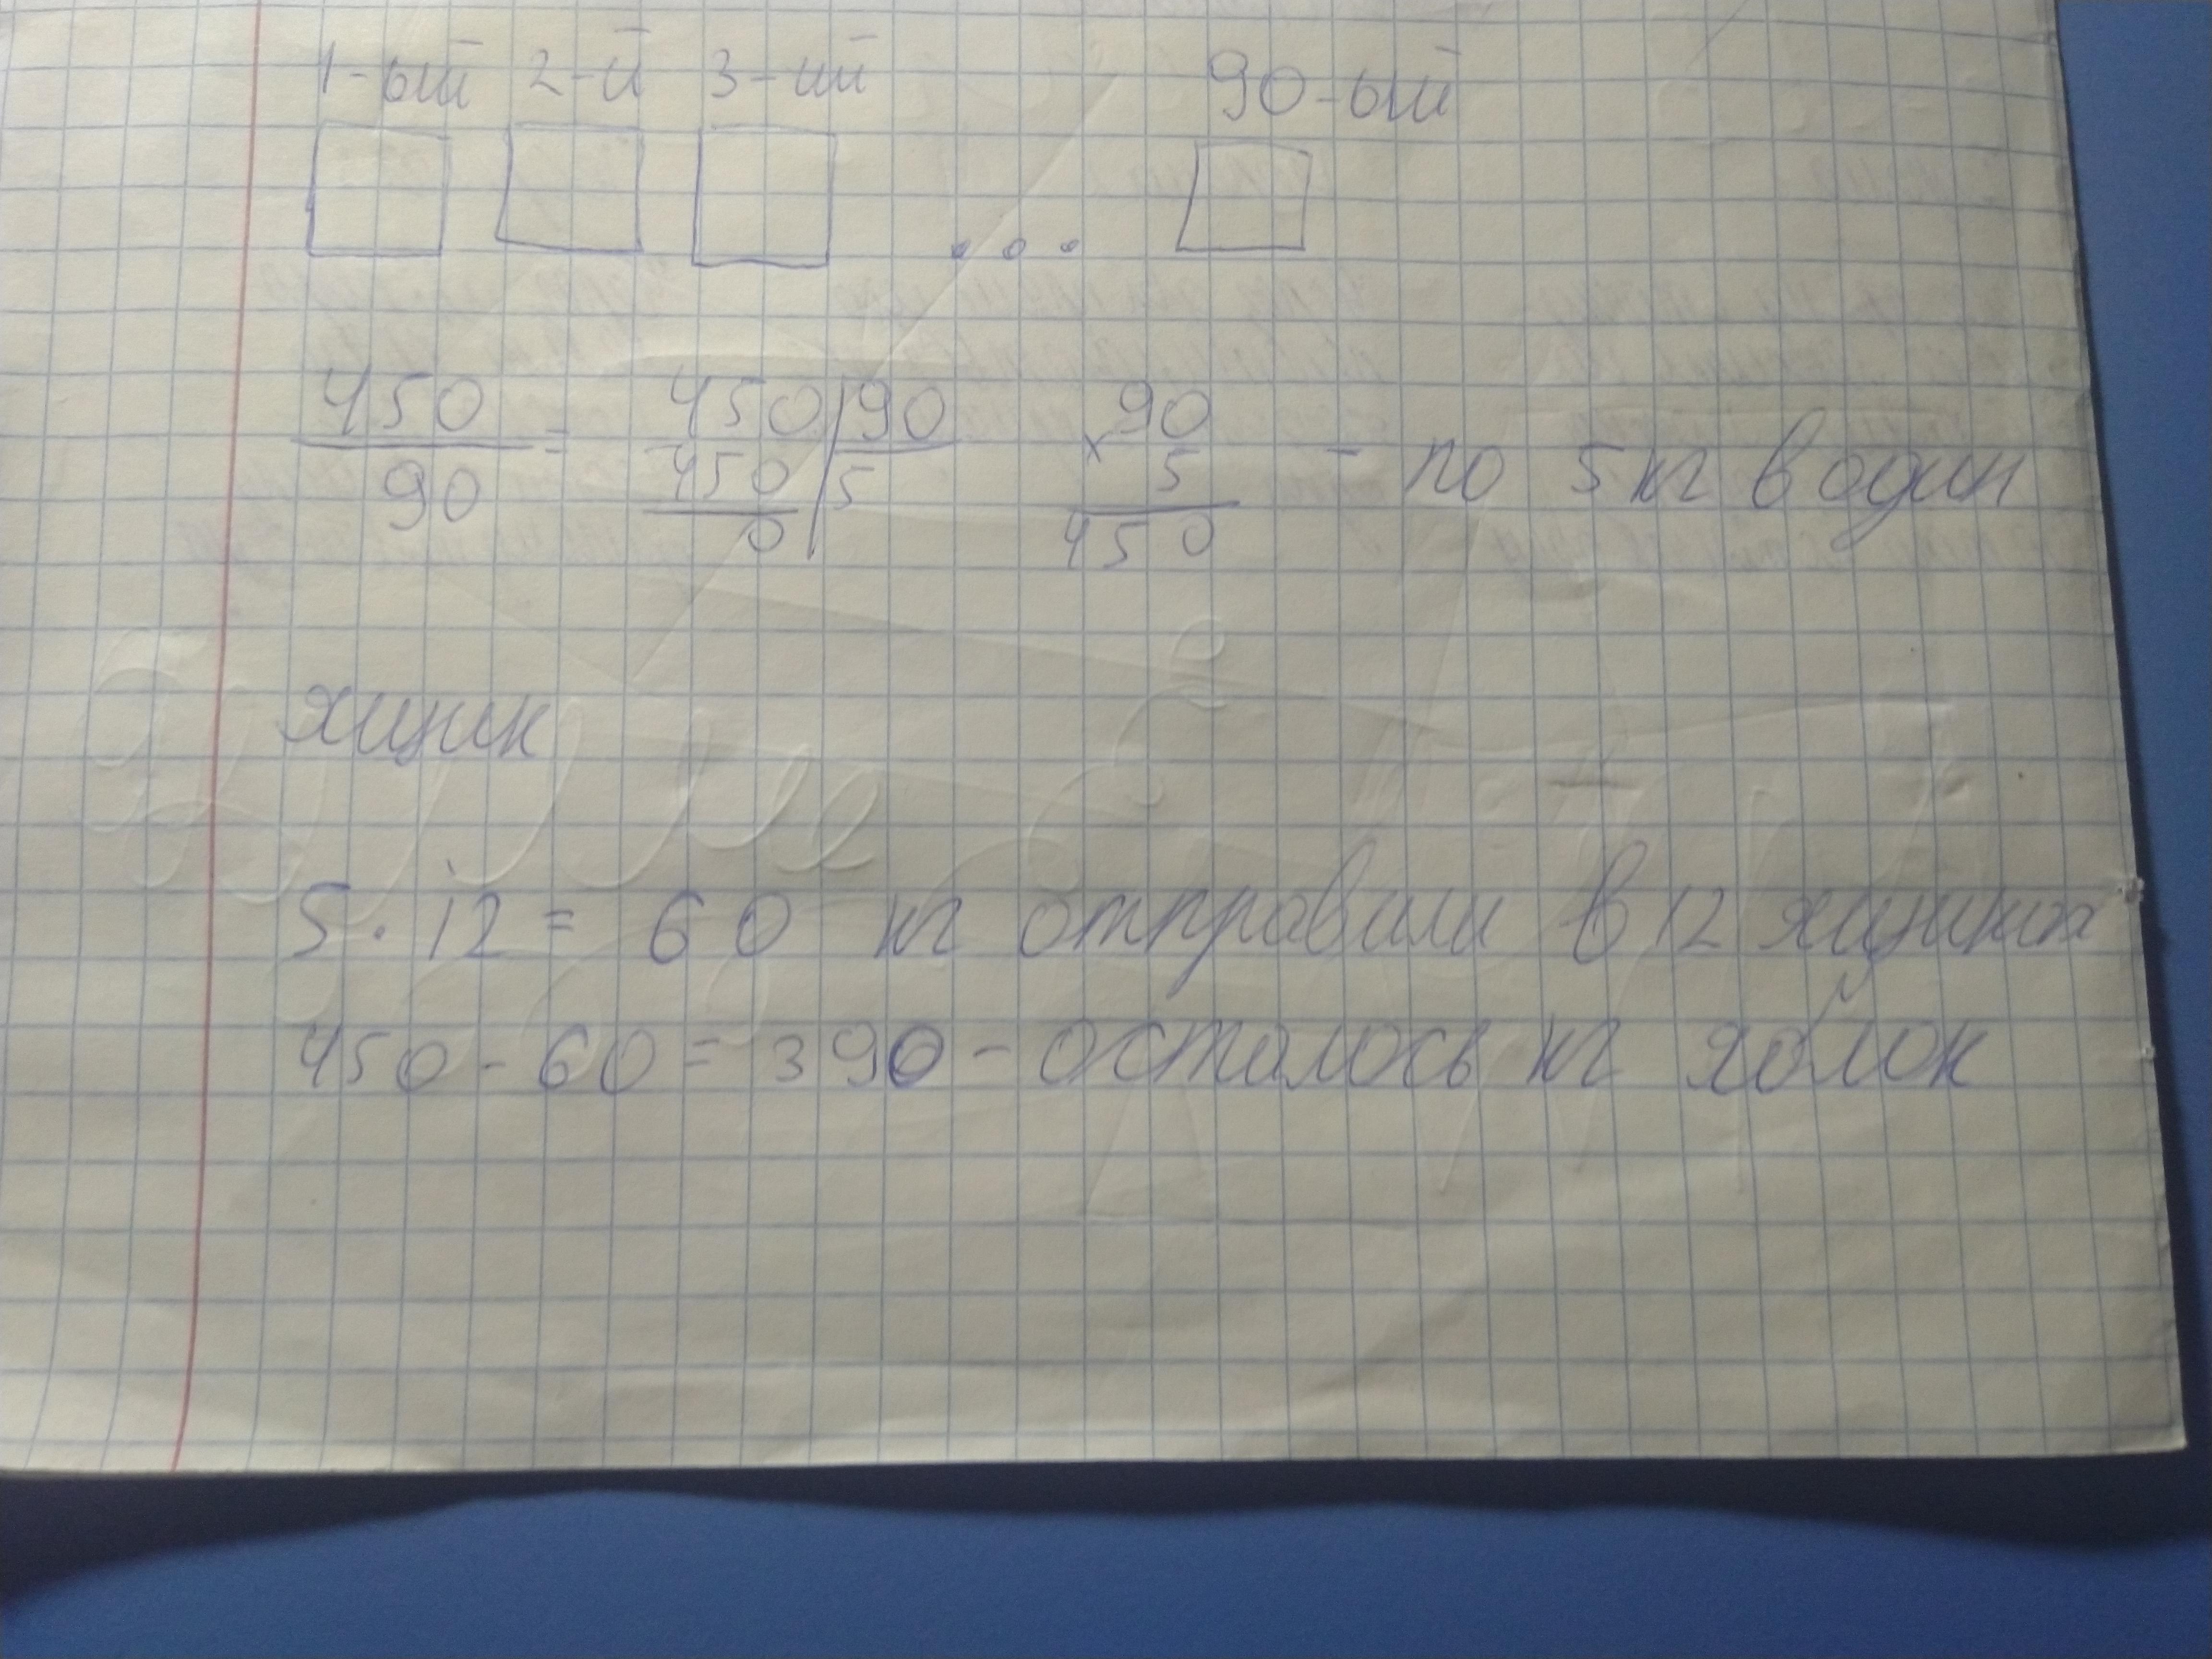 1-ый 2-й 3-ий 90-ый
...
450/90 = 450 | 90 90 - по 5 кг в один
450 | 5 × 5
0 450
ящик
5 · 12 = 60 кг отправили в 12 ящиках
450 - 60 = 390 - осталось кг яблок